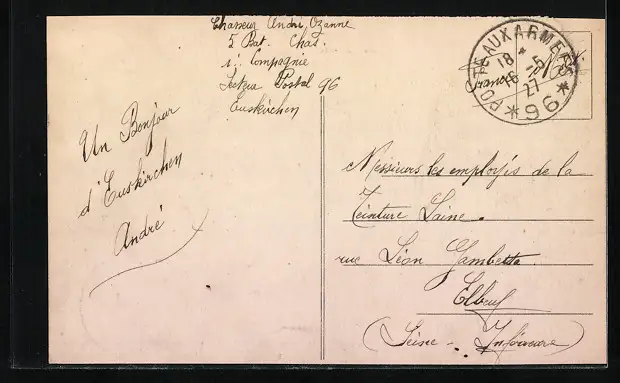 Chasseur André Ozanne
5 Bat. Chas.
1. Compagnie
Secteur Postal 96
Euskirchen
POSTE AUX ARMEES
18 *
16 5
27
* 96 *
Un Bonjour
d'Euskirchen
André
Messieurs les employés de la
Teinture Laine.
rue Léon Gambetta.
Elbeuf
(Seine - Inférieure)